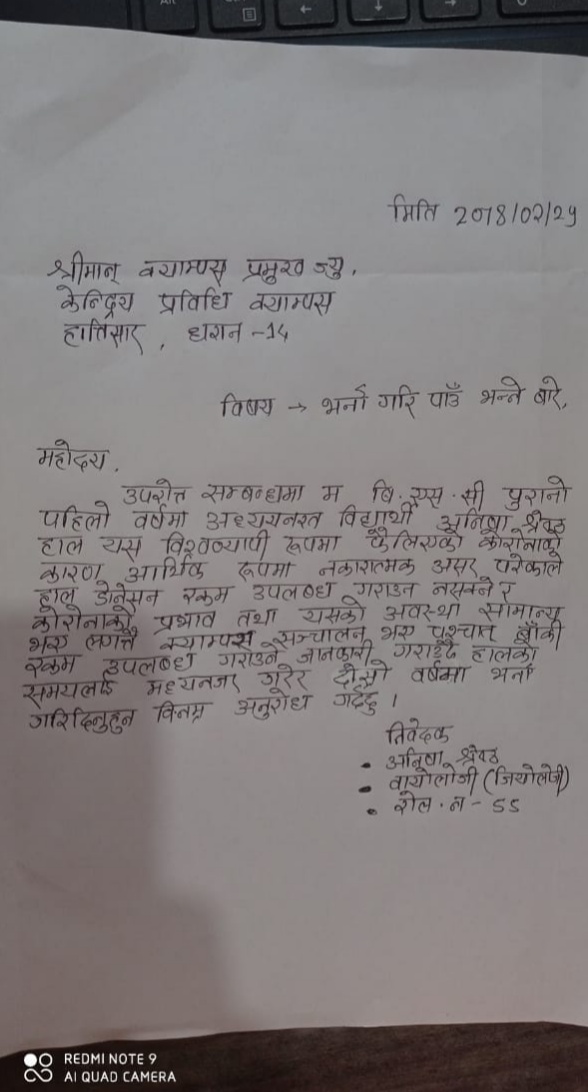 मिति 2078/02/29
श्रीमान् क्याम्पस् प्रमुख ज्यु,
केन्द्रिय प्रविधि क्याम्पस
हात्तिसार, धरान -14
विषय → भर्ना गरि पाउँ भन्ने बारे,
महोदय,
उपरोक्त सम्बन्धमा म बि.एस.सी पुरानो
पहिलो वर्षमा अध्ययनरत विद्यार्थी अनिषा श्रेष्ठ
हाल यस विश्वव्यापी रूपमा फैलिएको कोरोनाको
कारण आर्थिक रूपमा नकारात्मक असर परेकाले
हाल डोनेसन रकम उपलब्ध गराउन नसक्ने र
कोरोनाको प्रभाव तथा यसको अवस्था सामान्य
भए लगत्तै क्याम्पस सञ्चालन भए पश्चात बाँकी
रकम उपलब्ध गराउने जानकारी गराउँदै हालको
समयलाई मध्यनजर गरेर दोस्रो वर्षमा भर्ना
गरिदिनुहुन विनम्र अनुरोध गर्दछु ।
निवेदक
• अनिषा श्रेष्ठ
• वायोलोजी (जियोलोजी)
• रोल.न - 55
REDMI NOTE 9
AI QUAD CAMERA